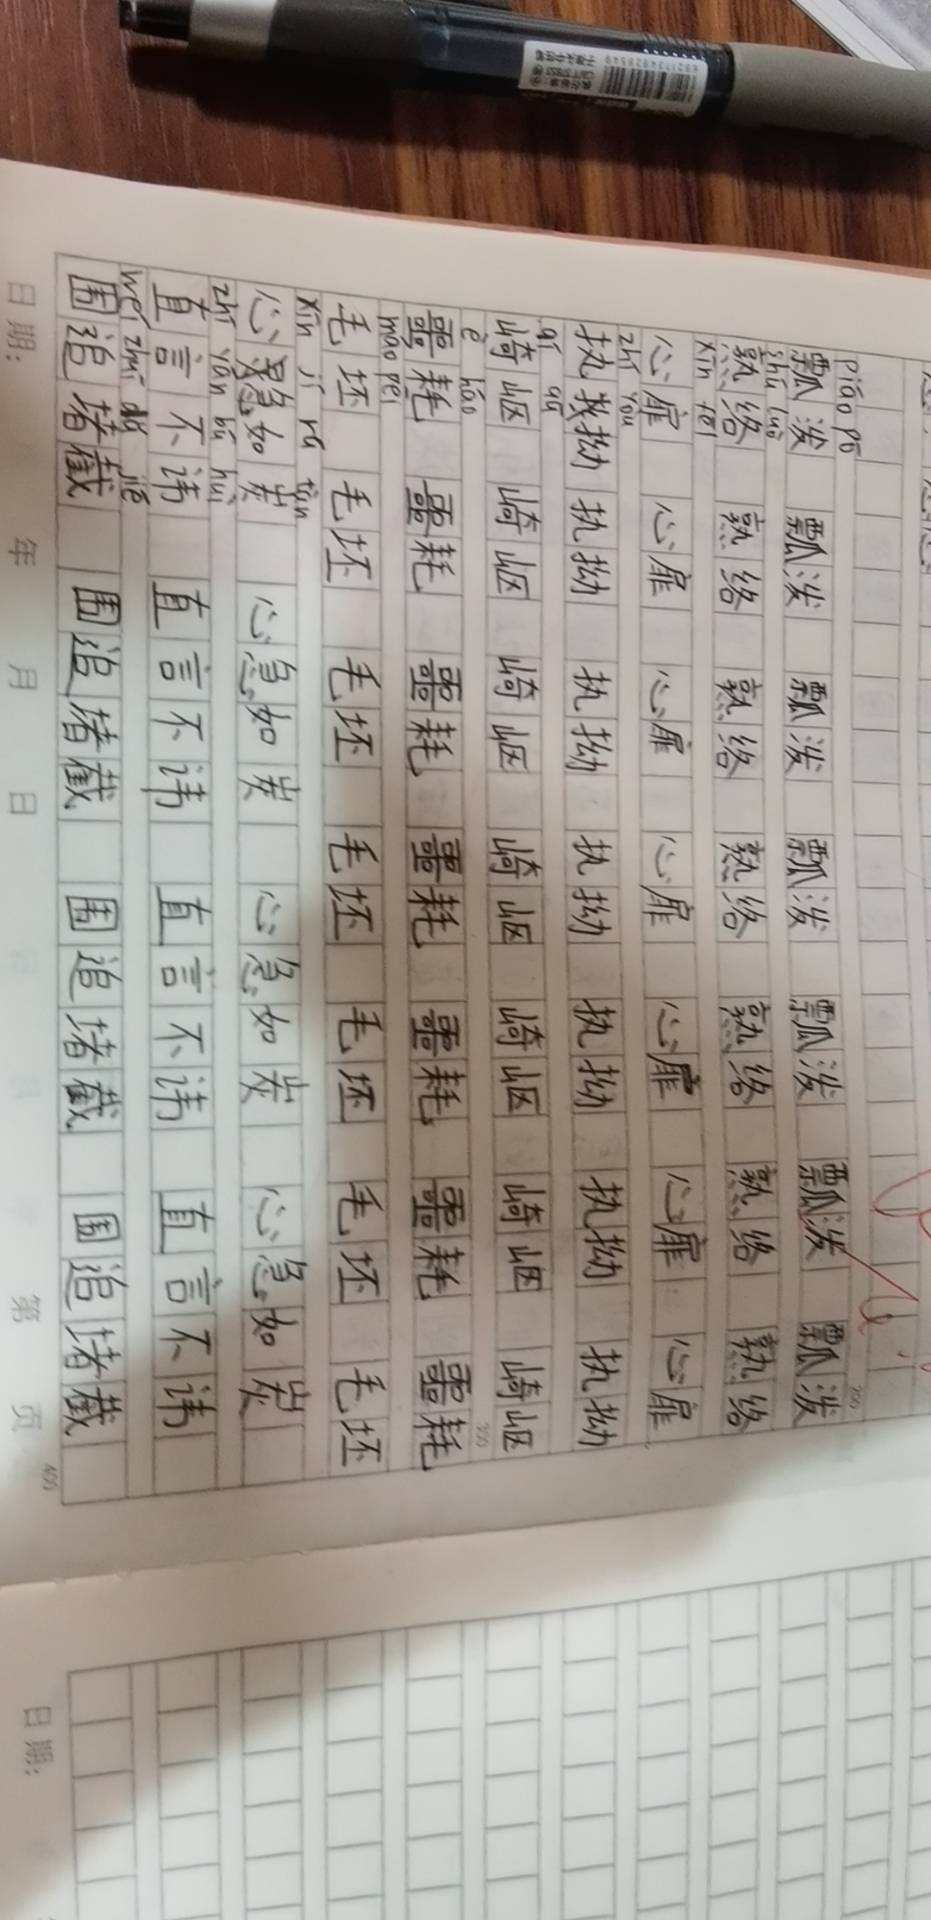 piáo pō
瓢泼 瓢泼 瓢泼 瓢泼 瓢泼 瓢泼 瓢泼
shú luò
熟络 熟络 熟络 熟络 熟络 熟络 熟络
xīn fēi
心扉 心扉 心扉 心扉 心扉 心扉 心扉
zhī you
执拗 执拗 执拗 执拗 执拗 执拗 执拗
qí qū
崎岖 崎岖 崎岖 崎岖 崎岖 崎岖 崎岖
300
è hào
噩耗 噩耗 噩耗 噩耗 噩耗 噩耗 噩耗
máo pēi
毛坯 毛坯 毛坯 毛坯 毛坯 毛坯 毛坯
xīn jí rú tàn
心急如炭 心急如炭 心急如炭 心急如炭
zhí yán bú huì
直言不讳 直言不讳 直言不讳 直言不讳
wéi zhuī dǔ jié
围追堵截 围追堵截 围追堵截 围追堵截
400
日期: 年 月 日 第 页
日期: